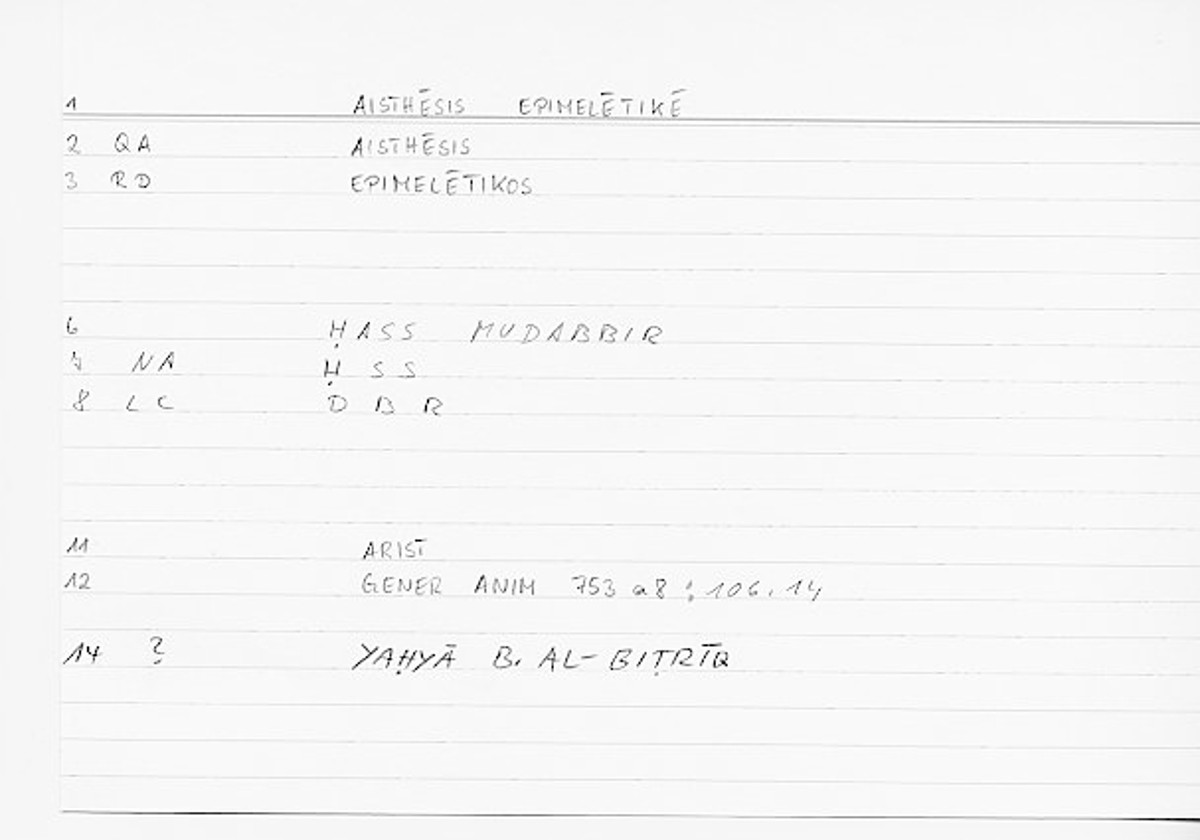 1 AISTHĒSIS EPIMELĒTIKĒ
2 QA AISTHĒSIS
3 RD EPIMELĒTIKOS
6 ḤASS MUDABBIR
7 NA Ḥ S S
8 LC D B R
11 ARIST
12 GENER ANIM 753 a8 ; 106,14
14 ? YAḤYĀ B. AL-BIṬRĪQ